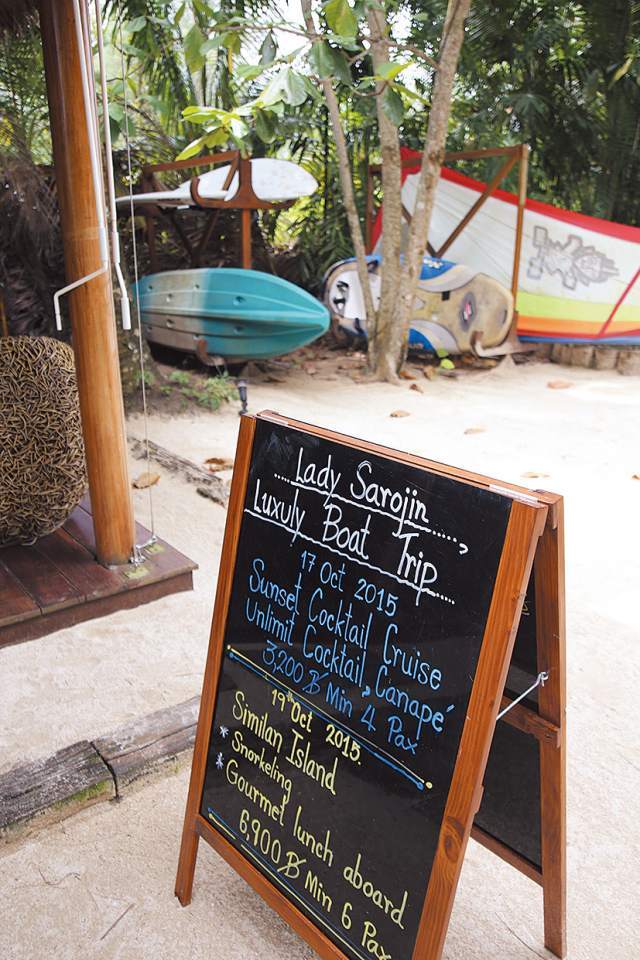 Lady Sarojin
Luxuly Boat Trip
17 Oct 2015
Sunset Cocktail Cruise
Unlimit Cocktail, Canapé
3,200 ฿ Min 4 Pax
19th Oct 2015.
Similan Island
* Snorkeling
* Gourmet lunch aboard
6,900 ฿ Min 6 Pax